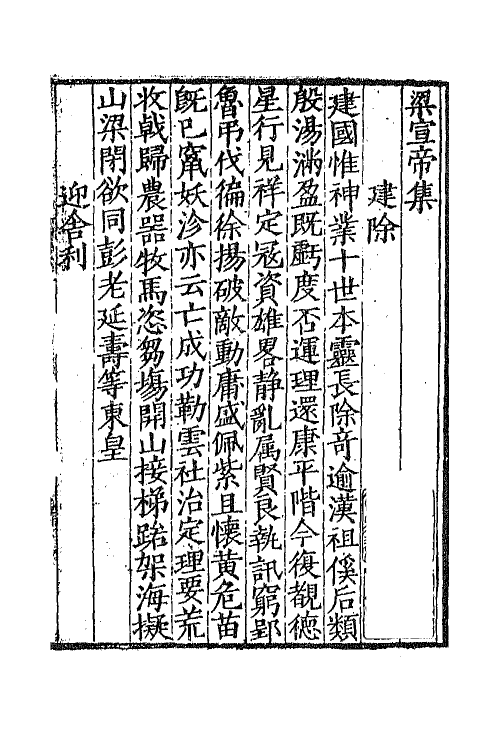 梁宣帝集
建除
建國惟神業十世本靈長除奇逾漢祖傒后類
殷湯滿盈既虧度否運理還康平階今復覩德
星行見祥定冦資雄畧静亂屬賢良執訊窮郢
魯弔伐徧徐揚破敵動庸盛佩紫且懷黄危苗
既已竄妖沴亦云亡成功勒雲社治定理要荒
收戟歸農器牧馬恣芻場開山接梯路架海擬
山梁閉欲同彭老延壽等東皇
迎舍利